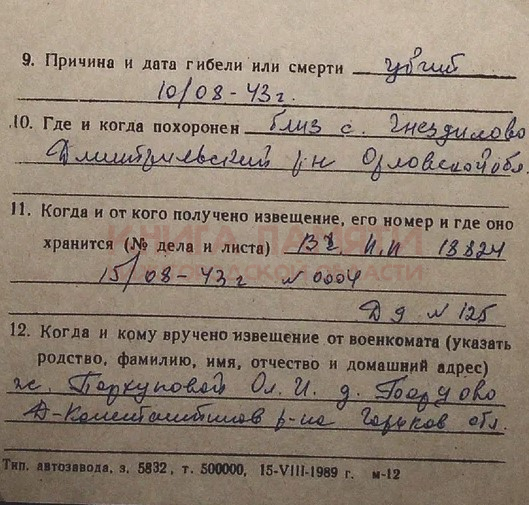 9. Причина и дата гибели или смерти убит
10/08-43г.
10. Где и когда похоронен близ с. Гнездилово
Дмитриевский р-н Орловской обл.
11. Когда и от кого получено извещение, его номер и где оно
хранится (№ дела и листа) п.п 18824
15/08-43 г N 0004
Д 9 N 125
12. Когда и кому вручено извещение от военкомата (указать
родство, фамилию, имя, отчество и домашний адрес)
ж. Ол. И. д.
Д-Константинов р-на Горьков обл.
Тип. автозавода, з. 5832, т. 500000, 15-VIII-1989 г. м-12
КНИГА ПАМЯТИ